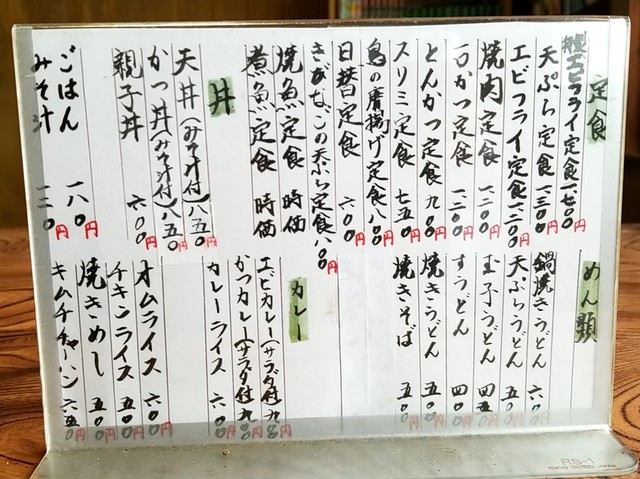 定食
特製エビフライ定食 一、七〇〇円
天ぷら定食 一、三〇〇円
エビフライ定食 一、二〇〇円
焼肉定食 一、二〇〇円
一口かつ定食 一、二〇〇円
とんかつ定食 九〇〇円
スリミ定食 七五〇円
鳥の唐揚げ定食 八〇〇円
日替定食 六〇〇円
きびなごの天ぷら定食 八〇〇円
焼魚定食 時価
煮魚定食 時価
丼
天丼(みそ汁付)八五〇円
かつ丼(みそ汁付)八五〇円
親子丼 六〇〇円
ごはん 一八〇円
みそ汁 一二〇円
めん類
鍋焼きうどん 六〇〇円
天ぷらうどん 五〇〇円
玉子うどん 四五〇円
すうどん 四〇〇円
焼きうどん 五〇〇円
焼きそば 五〇〇円
カレー
エビカレー(サラダ付)九〇〇円
かつカレー(サラダ付)九〇〇円
カレーライス 六〇〇円
オムライス 六〇〇円
チキンライス 五〇〇円
焼きめし 五〇〇円
キムチチャーハン 六五〇円
RS-1